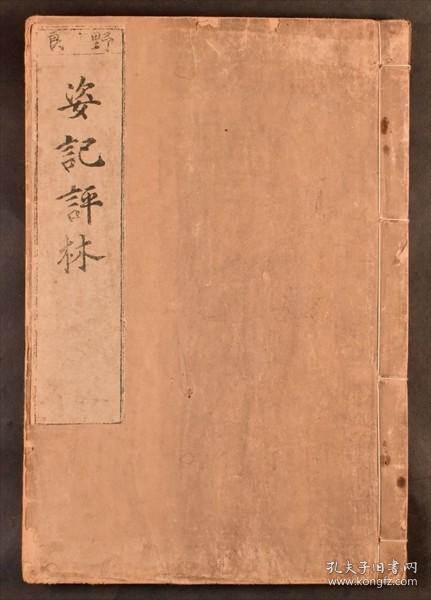 野良
姿記評林
孔夫子旧书网
www.kongfz.com